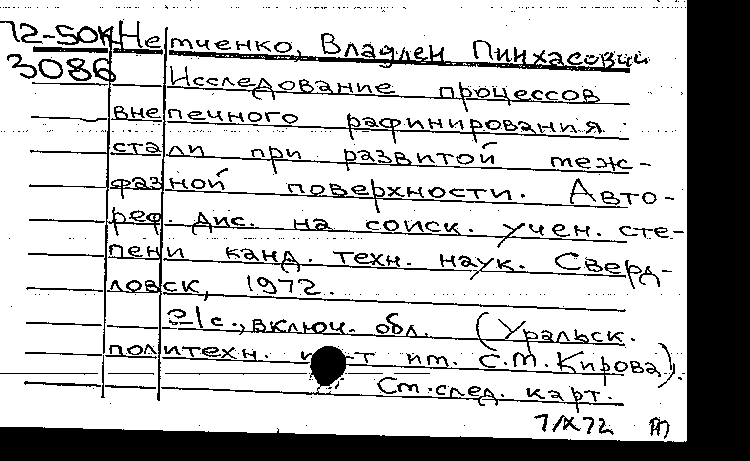 72-50К Нетченко, Владлен Пинхасович
3086 Исследование процессов
внепечного рафинирования
стали при развитой меж-
фазной поверхности. Авто-
реф. дис. на соиск. учен. сте-
пени канд. техн. наук. Сверд-
ловск, 1972.
21с., включ. обл. (Уральск.
политехн. и-т им. С.М.Кирова).
См.след. карт.
7/IX 72